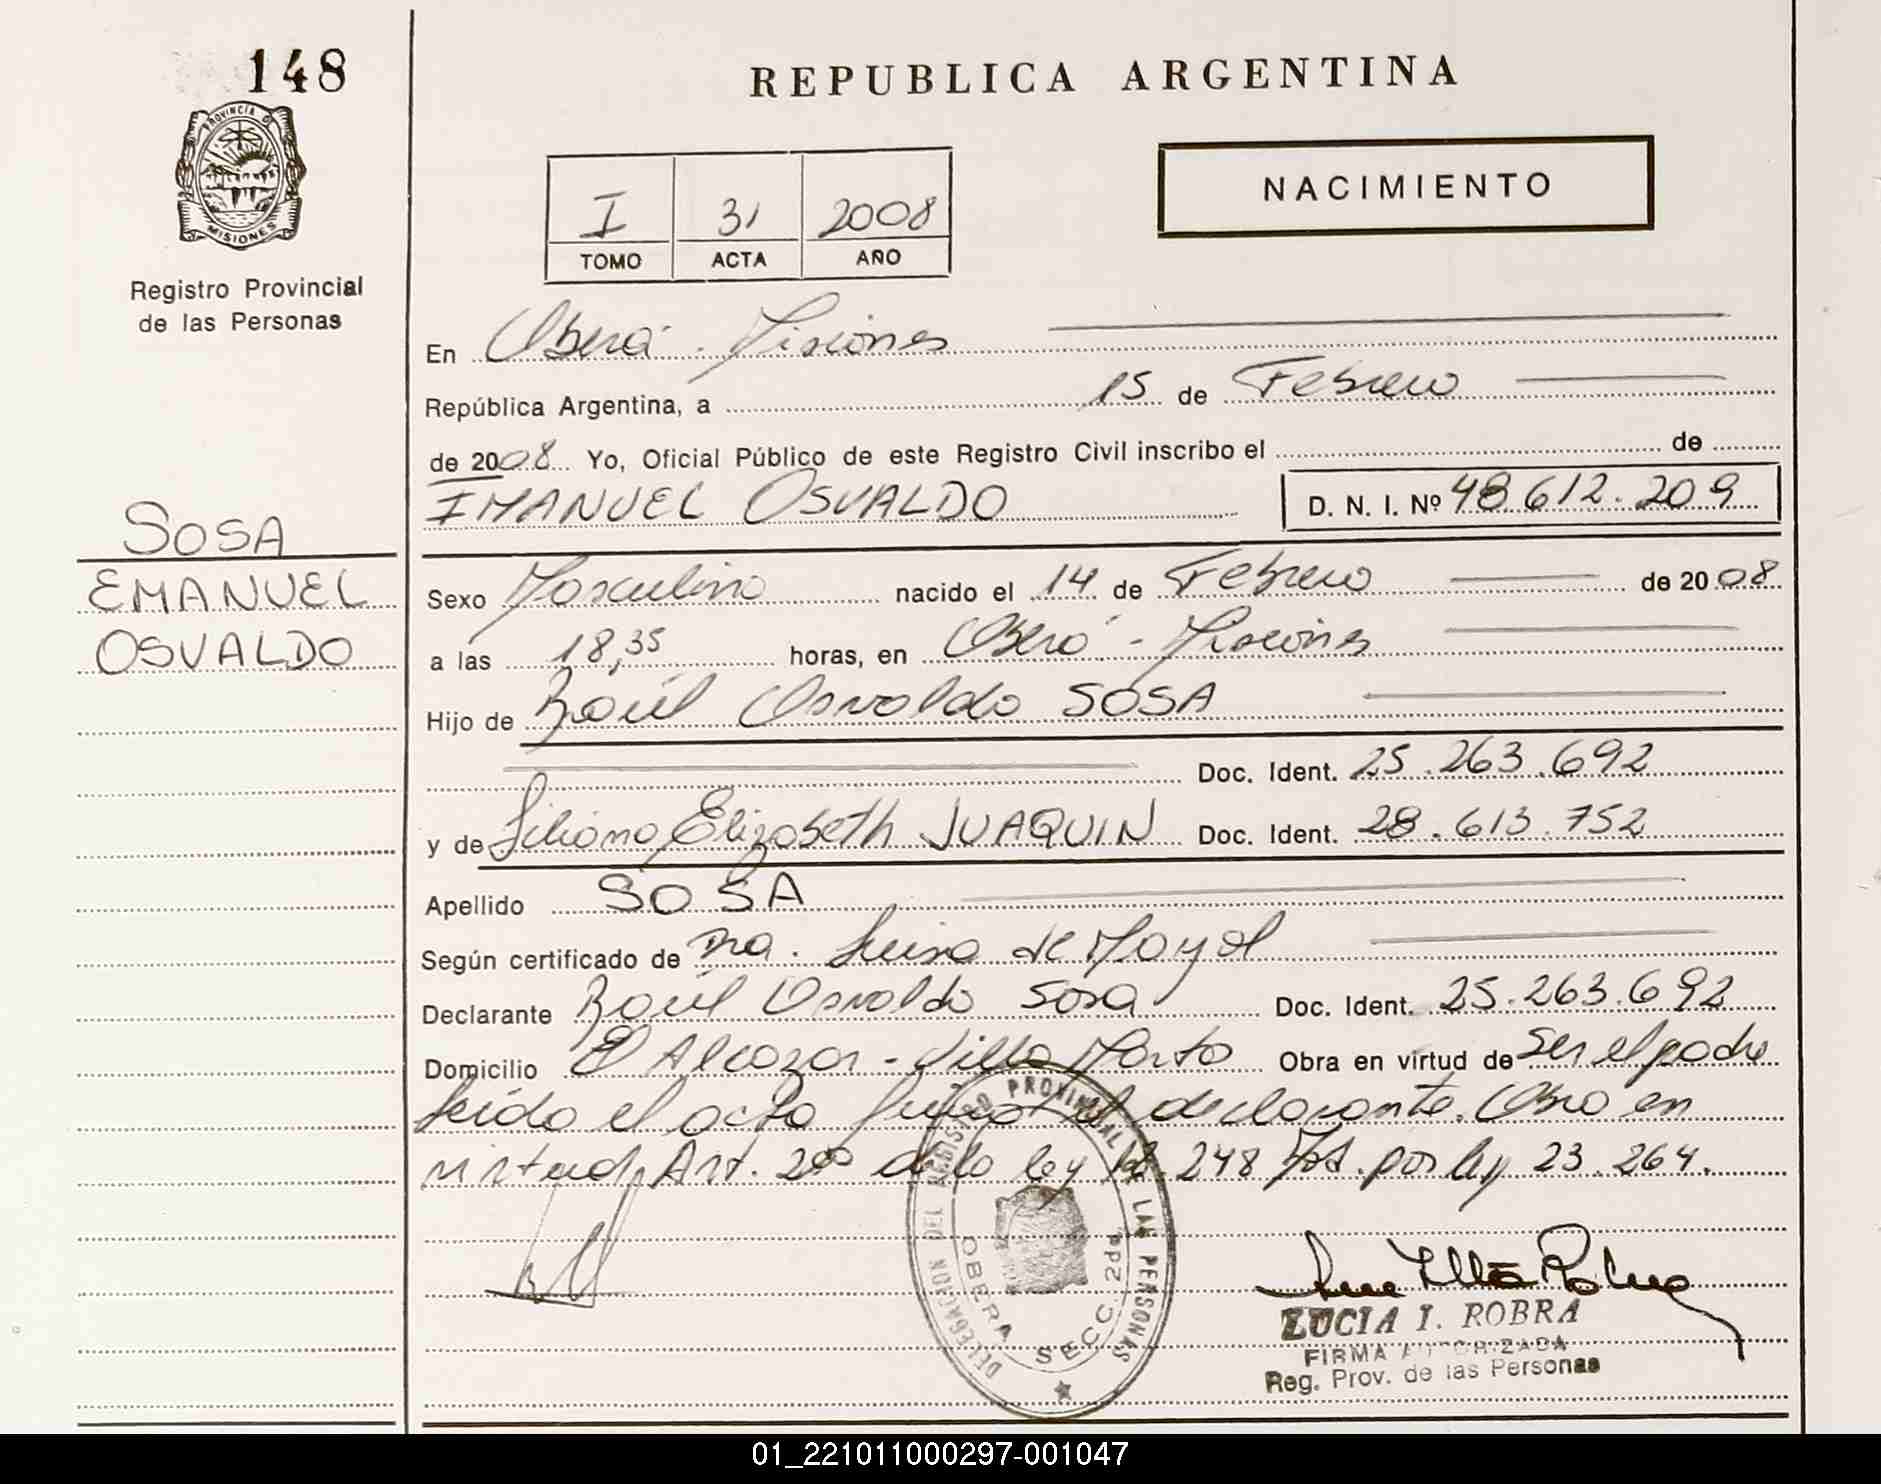 148
PROVINCIA DE
MISIONES
Registro Provincial
de las Personas
SOSA
EMANUEL
OSVALDO
REPUBLICA ARGENTINA
NACIMIENTO
I 31 2008
TOMO ACTA AÑO
En Oberá - Misiones
República Argentina, a 15 de Febrero
de 2008 Yo, Oficial Público de este Registro Civil inscribo el de
EMANUEL OSVALDO D. N. I. Nº 48.612.209
Sexo Masculino nacido el 14 de Febrero de 2008
a las 18,35 horas, en Oberá - Misiones
Hijo de Raúl Osvaldo SOSA
Doc. Ident. 25.263.692
y de Liliana Elizabeth JUAQUIN Doc. Ident. 28.613.752
Apellido SOSA
Según certificado de Dra. Luisa de Mayol
Declarante Raúl Osvaldo Sosa Doc. Ident. 25.263.692
Domicilio El Alcazar - Villa Marta Obra en virtud de ser el padre
Leído el acta firma el declarante. Obra en
virtud, Art. 2º de la ley 18.248 Mod. por ley 23.264.
DELEGACION DEL REGISTRO PROVINCIAL DE LAS PERSONAS
OBERA SECC. 2da
LUCIA I. ROBRA
FIRMA AUTORIZADA
Reg. Prov. de las Personas
01_221011000297-001047